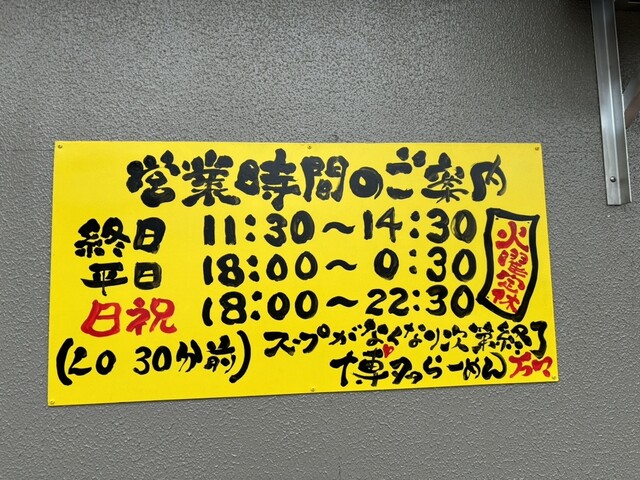 営業時間のご案内
終日 11:30～14:30
平日 18:00～0:30
日祝 18:00～22:30
火曜定休
(LO 30分前)
スープがなくなり次第終了
博多らーめん